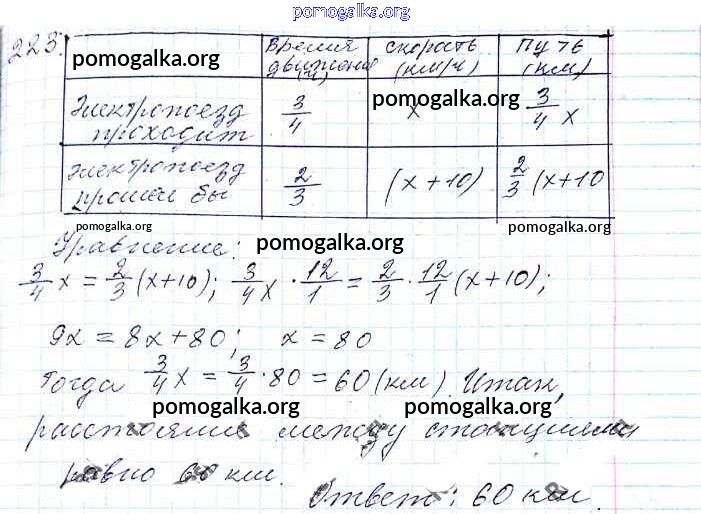 pomogalka.org
223. pomogalka.org Время движения (ч) Скорость (км/ч) Путь (км)
Электропоезд проходит 3/4 pomogalka.org x 3/4 x
Электропоезд прошёл бы 2/3 (x+10) 2/3 (x+10
pomogalka.org pomogalka.org
Уравнение: pomogalka.org
3/4 x = 2/3 (x+10); 3/4 x · 12/1 = 2/3 · 12/1 (x+10);
9x = 8x+80; x = 80
Тогда 3/4 x = 3/4 · 80 = 60 (км). Итак,
pomogalka.org pomogalka.org
расстояние между станциями
равно 60 км.
Ответ: 60 км.